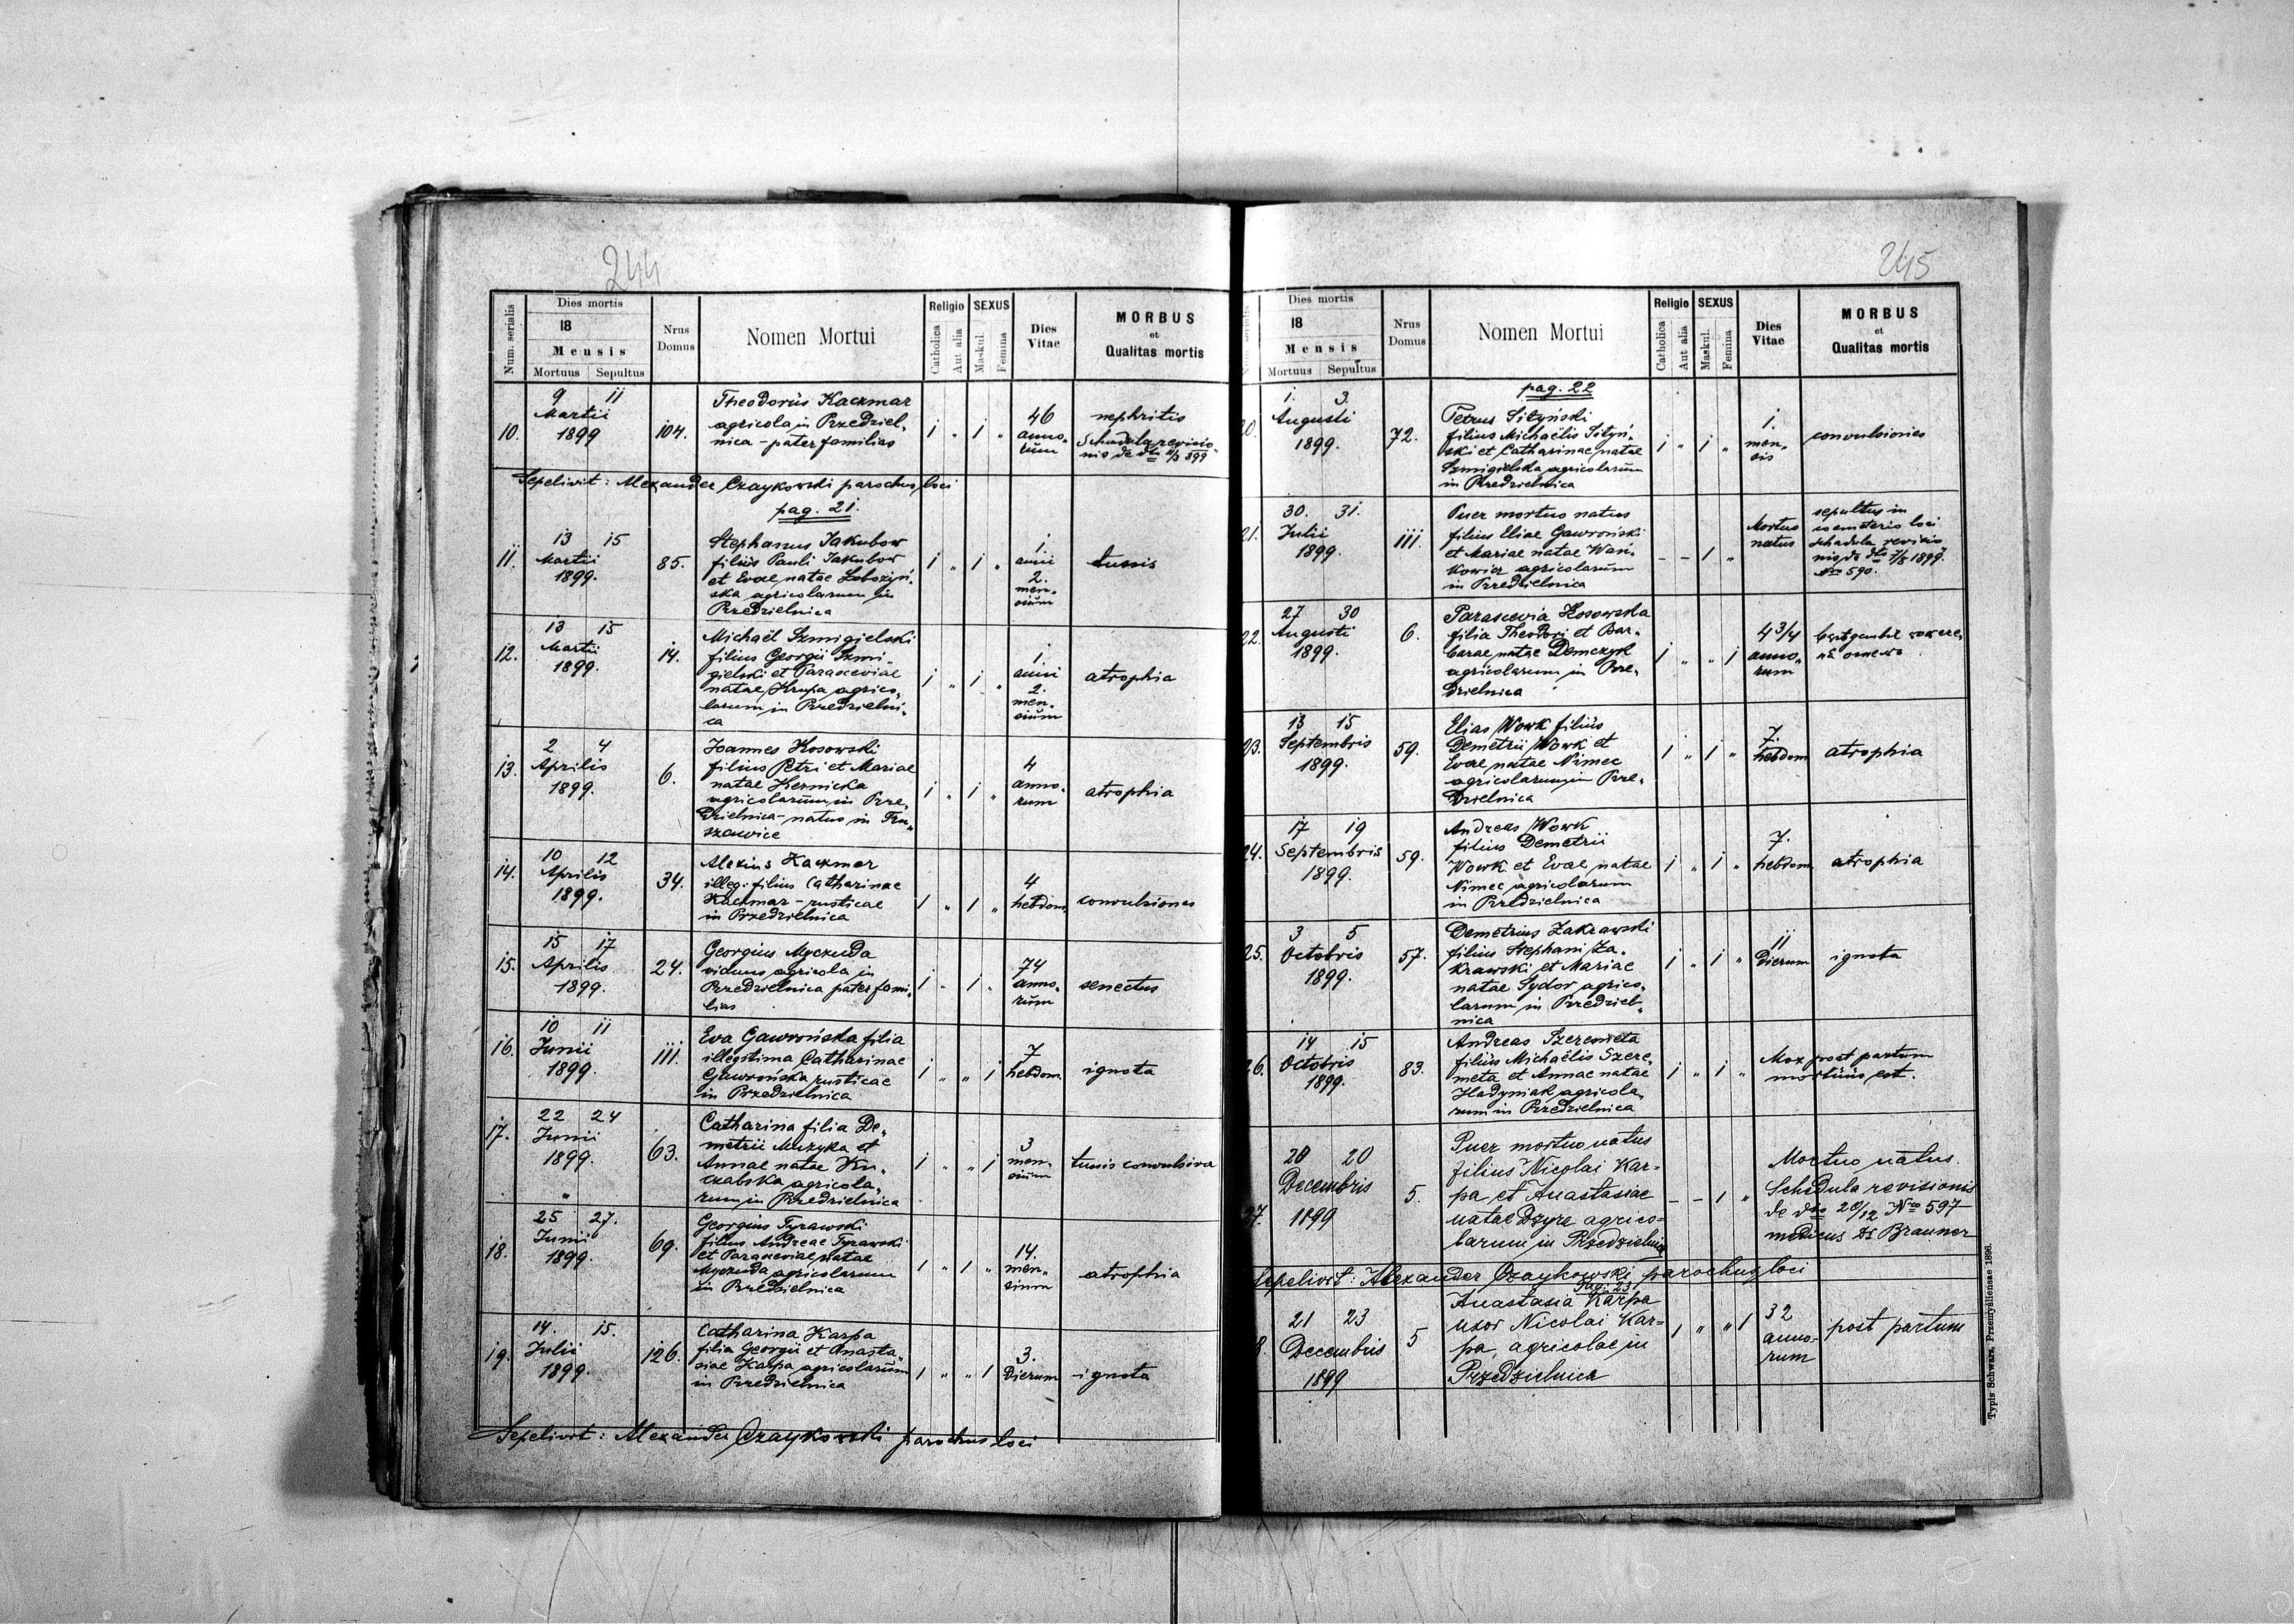 244
Num. serialis
Dies mortis
18
Mensis
Mortuus Sepultus
Nrus Domus
Nomen Mortui
Religio
Catholica
Aut alia
SEXUS
Maskul.
Femina
Dies Vitae
MORBUS
et
Qualitas mortis
10.
9 11
Martii
1899
104.
Theodorus Kaczmar
agricola in Przedziel„
nica - pater familias
1 „ 1 „
46
anno„
rum
nephritis
Schedula revisio„
nis de dto 11/3 899
Sepelivit: Alexander Czaykowski parochus loci
pag. 21.
11.
13 15
Martii
1899.
85.
Stephanus Jakubow
filius Pauli Jakubow
et Evae natae Łobozyń„
ska agricolarum in
Przedzielnica
1 „ 1 „
1.
anni
2.
men„
sium
tussis
12.
13 15
Martii
1899.
14.
Michaël Szmigielski
filius Georgii Szmi„
gielski et Parasceviae
natae Krupa agrico„
larum in Przedzielni„
ca
1 „ 1 „
1.
anni
2.
men„
sium
atrophia
13.
2 4
Aprilis
1899.
6.
Joannes Kosowski
filius Petri et Mariae
natae Kernicka
agricolarum in Prze„
dzielnica - natus in Tru„
szowice
1 „ 1 „
4
anno„
rum
atrophia
14.
10 12
Aprilis
1899.
34.
Alexius Kaczmar
illeg. filius Catharinae
Kaczmar - rusticae
in Przedzielnica
1 „ 1 „
4
hebdom.
convulsiones
15.
15 17
Aprilis
1899.
24.
Georgius Myczuda
viduus agricola in
Przedzielnica pater fami„
lias
1 „ 1 „
74
anno„
rum
senectus
16.
10 11
Junii
1899.
111.
Eva Gawrońska filia
illegitima Catharinae
Gawrońska rusticae
in Przedzielnica
1 „ „ 1
7
hebdom.
ignota
17.
22 24
Junii
1899.
63.
Catharina filia De„
metrii Muzyka et
Annae natae Ku„
czabska agricola„
rum in Przedzielnica
1 „ „ 1
3
men„
sium
tussis convulsiva
18.
25 27.
Junii
1899.
69.
Georgius Tyrawski
filius Andreae Tyrawski
et Parasceviae natae
Myczuda agricolarum
in Przedzielnica
1 „ 1 „
14.
men„
sium
atrophia
19.
14. 15.
Julii
1899.
126.
Catharina Karpa
filia Georgii et Anasta„
siae Karpa agricolarum
in Przedzielnica
1 „ „ 1
3.
dierum
ignota
Sepelivit: Alexander Czaykowski parochus loci
245
Dies mortis
18
Mensis
Mortuus Sepultus
Nrus Domus
Nomen Mortui
Religio
Catholica
Aut alia
SEXUS
Maskul.
Femina
Dies Vitae
MORBUS
et
Qualitas mortis
pag. 22
20.
1. 3.
Augusti
1899.
72.
Petrus Sityński
filius Michaëlis Sityń„
ski et Catharinae natae
Szmigielska agricolarum
in Przedzielnica
1 „ 1 „
1.
men„
sis
convulsiones
21.
30. 31.
Julii
1899.
111.
Puer mortuo natus
filius Eliae Gawroński
et Mariae natae Wań„
kowicz agricolarum
in Przedzielnica
- - 1 „
Mortuo
natus
sepultus in
coemeterio loci
schedula revisio
nis de dto 1/8 1899.
Nro 590.
22.
27 30
Augusti
1899.
6.
Parascevia Kosowska
filia Theodori et Bar„
barae natae Demczyk
agricolarum in Prze„
dzielnica
1 „ „ 1
4 3/4
anno„
rum
23.
13 15
Septembris
1899.
59.
Elias Wowk filius
Demetrii Wowk et
Evae natae Nimec
agricolarum in Prze„
dzielnica
1 „ 1 „
7.
hebdom
atrophia
24.
17 19
Septembris
1899.
59.
Andreas Wowk
filius Demetrii
Wowk et Evae natae
Nimec agricolarum
in Przedzielnica
1 „ 1 „
7.
hebdom
atrophia
25.
3 5
Octobris
1899.
57.
Demetrius Zakrawski
filius Stephani Za„
krawski et Mariae
natae Sydor agrico„
larum in Przedziel„
nica
1 „ 1 „
11
dierum
ignota
26.
14 15
Octobris
1899.
83.
Andreas Szeremeta
filius Michaëlis Szere„
meta et Annae natae
Hadyniak agricola„
rum in Przedzielnica
1 „ 1 „
Mox post partum
mortuus est.
27.
20 20
Decembris
1899
5.
Puer mortuo natus
filius Nicolai Kar=
pa et Anastasiae
natae Dzyrz agrico=
larum in Przedzielnica
- - 1 „
Mortuo natus.
Schedula revisionis
de dto 20/12 Nro 597
medicus Dr Brauner
Sepelivit: Alexander Czaykowski parochus loci
Pag. 23
28.
21 23
Decembris
1899
5
Anastasia Karpa
uxor Nicolai Kar=
pa, agricolae in
Przedzielnica
1 „ „ 1
32
anno-
rum
post partum
Typis Schwarz, Przemyśliensae 1896.